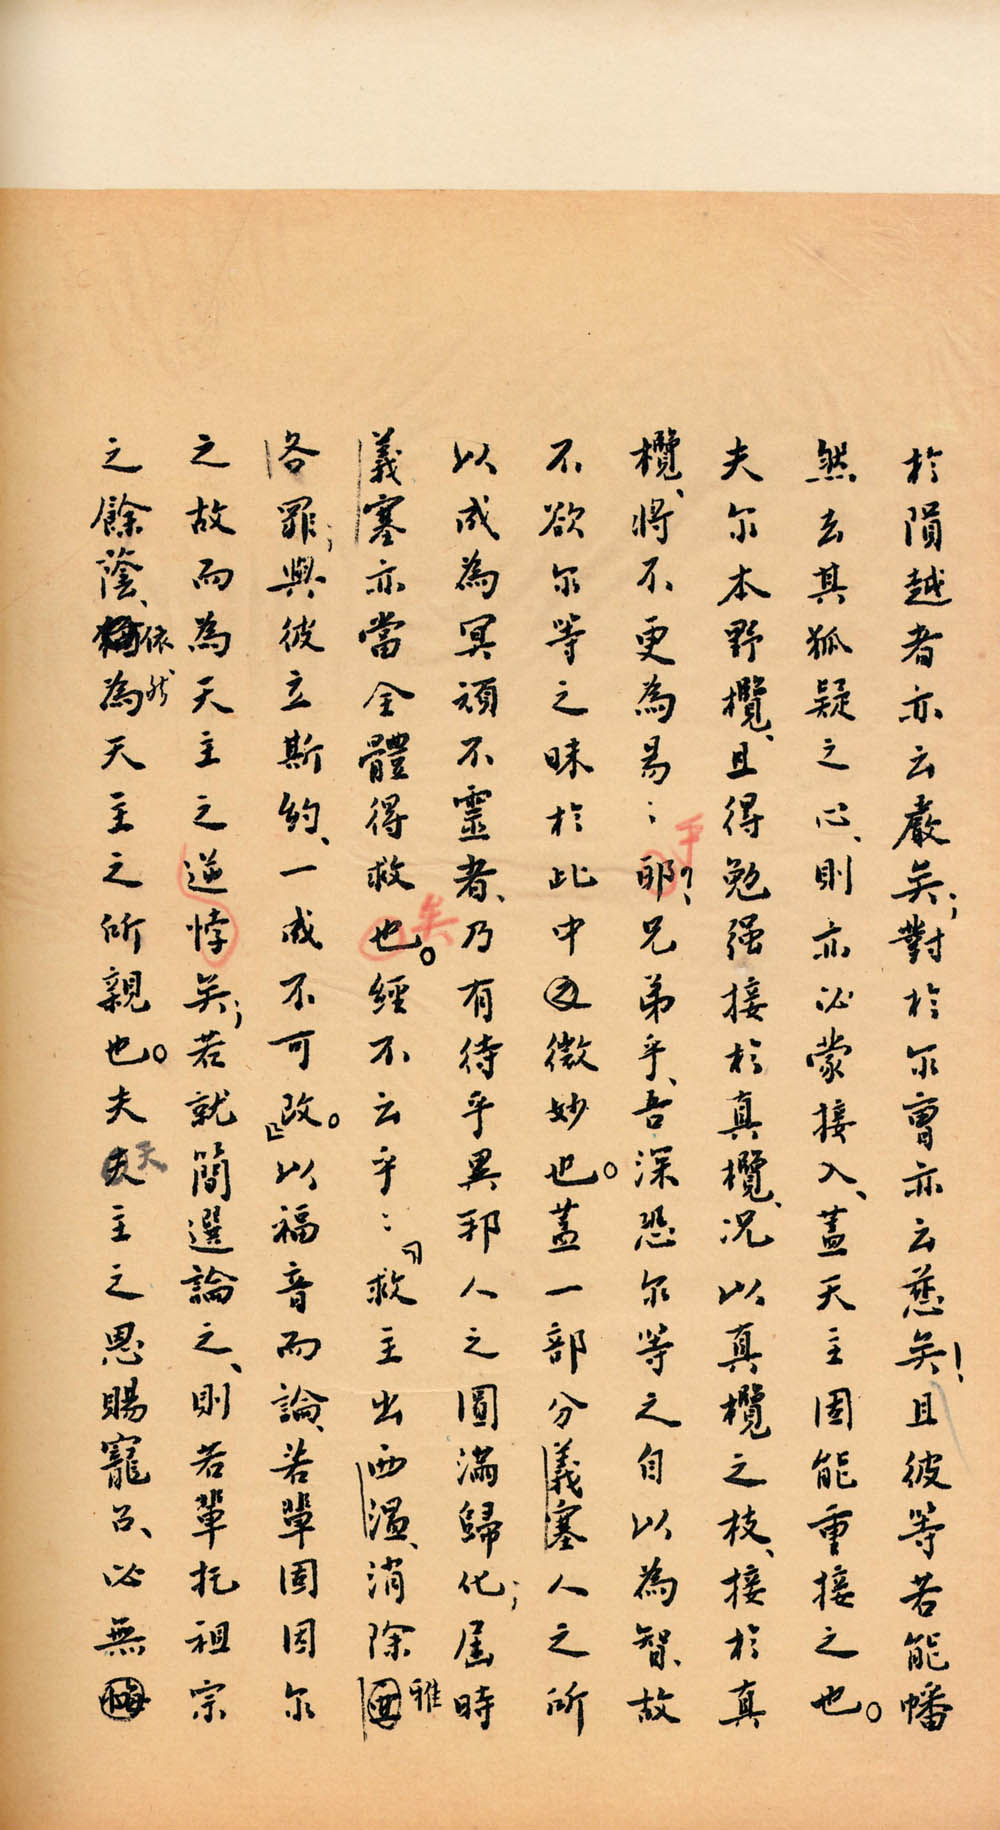 於隕越者亦云嚴矣；對於尔曹亦云慈矣！且彼等若能幡
然去其狐疑之心、則亦必蒙接入、蓋天主固能重接之也。
夫尔本野欖、且得勉强接於真欖、况以真欖之枝、接於真
欖、將不更為易：耶？乎兄弟乎、吾深恐尔等之自以為智、故
不欲尔等之昧於此中之微妙也。蓋一部分義塞人之所
以成為冥頑不靈者、乃有待乎異邦人之圓滿歸化；屆時
義塞亦當全體得救也。矣經不云乎：「救主出西溫、消除雅
各罪；與彼立斯約、一成不可改。」以福音而論、若輩固因尔
之故而為天主之逆悖矣；若就簡選論之、則若輩托祖宗
之餘蔭、依然為天主之所親也。夫天主之恩賜寵召、必無